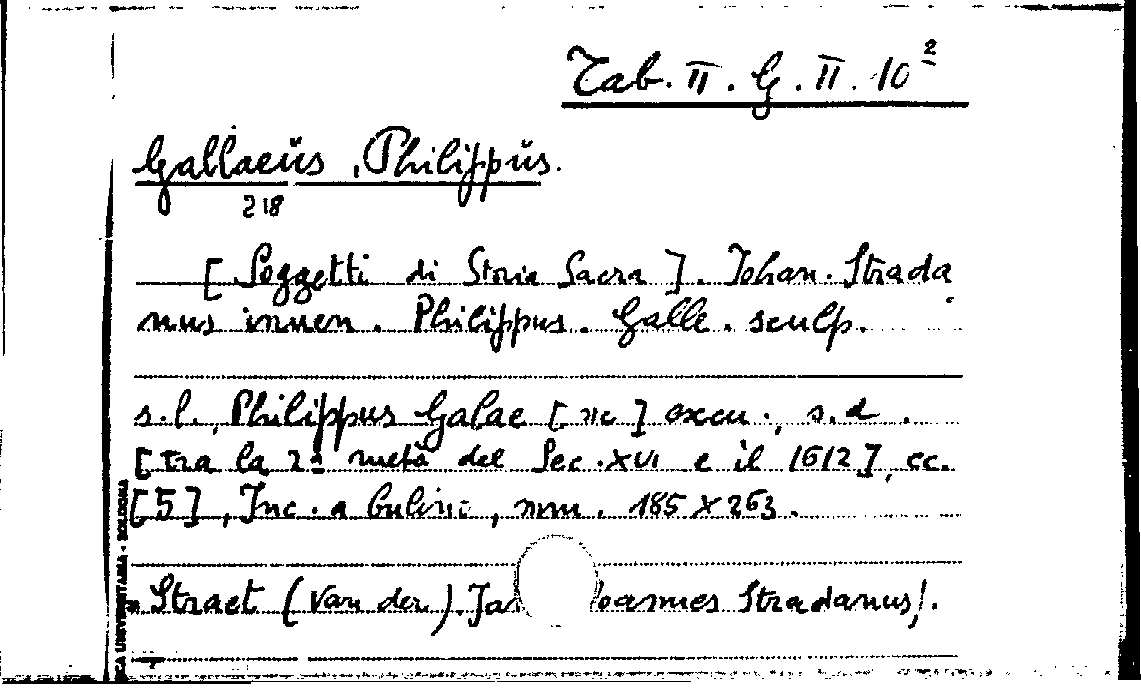 Tab. II. G. II. 10²
Gallaeüs, Philippüs.
218
[Soggetti di Storia Sacra]. Johan. Strada
nus inuen. Philippus. Galle. sculp.
s.l., Philippus Galae [sic] excu., s.d.
[tra la 2ª metà del Sec. XVI e il 1612], cc.
[5], Inc. a bulino, mm. 185 x 263.
Straet (Van der). Jan oannes Stradanus/.
CA UNIVERSITARIA - BOLOGNA